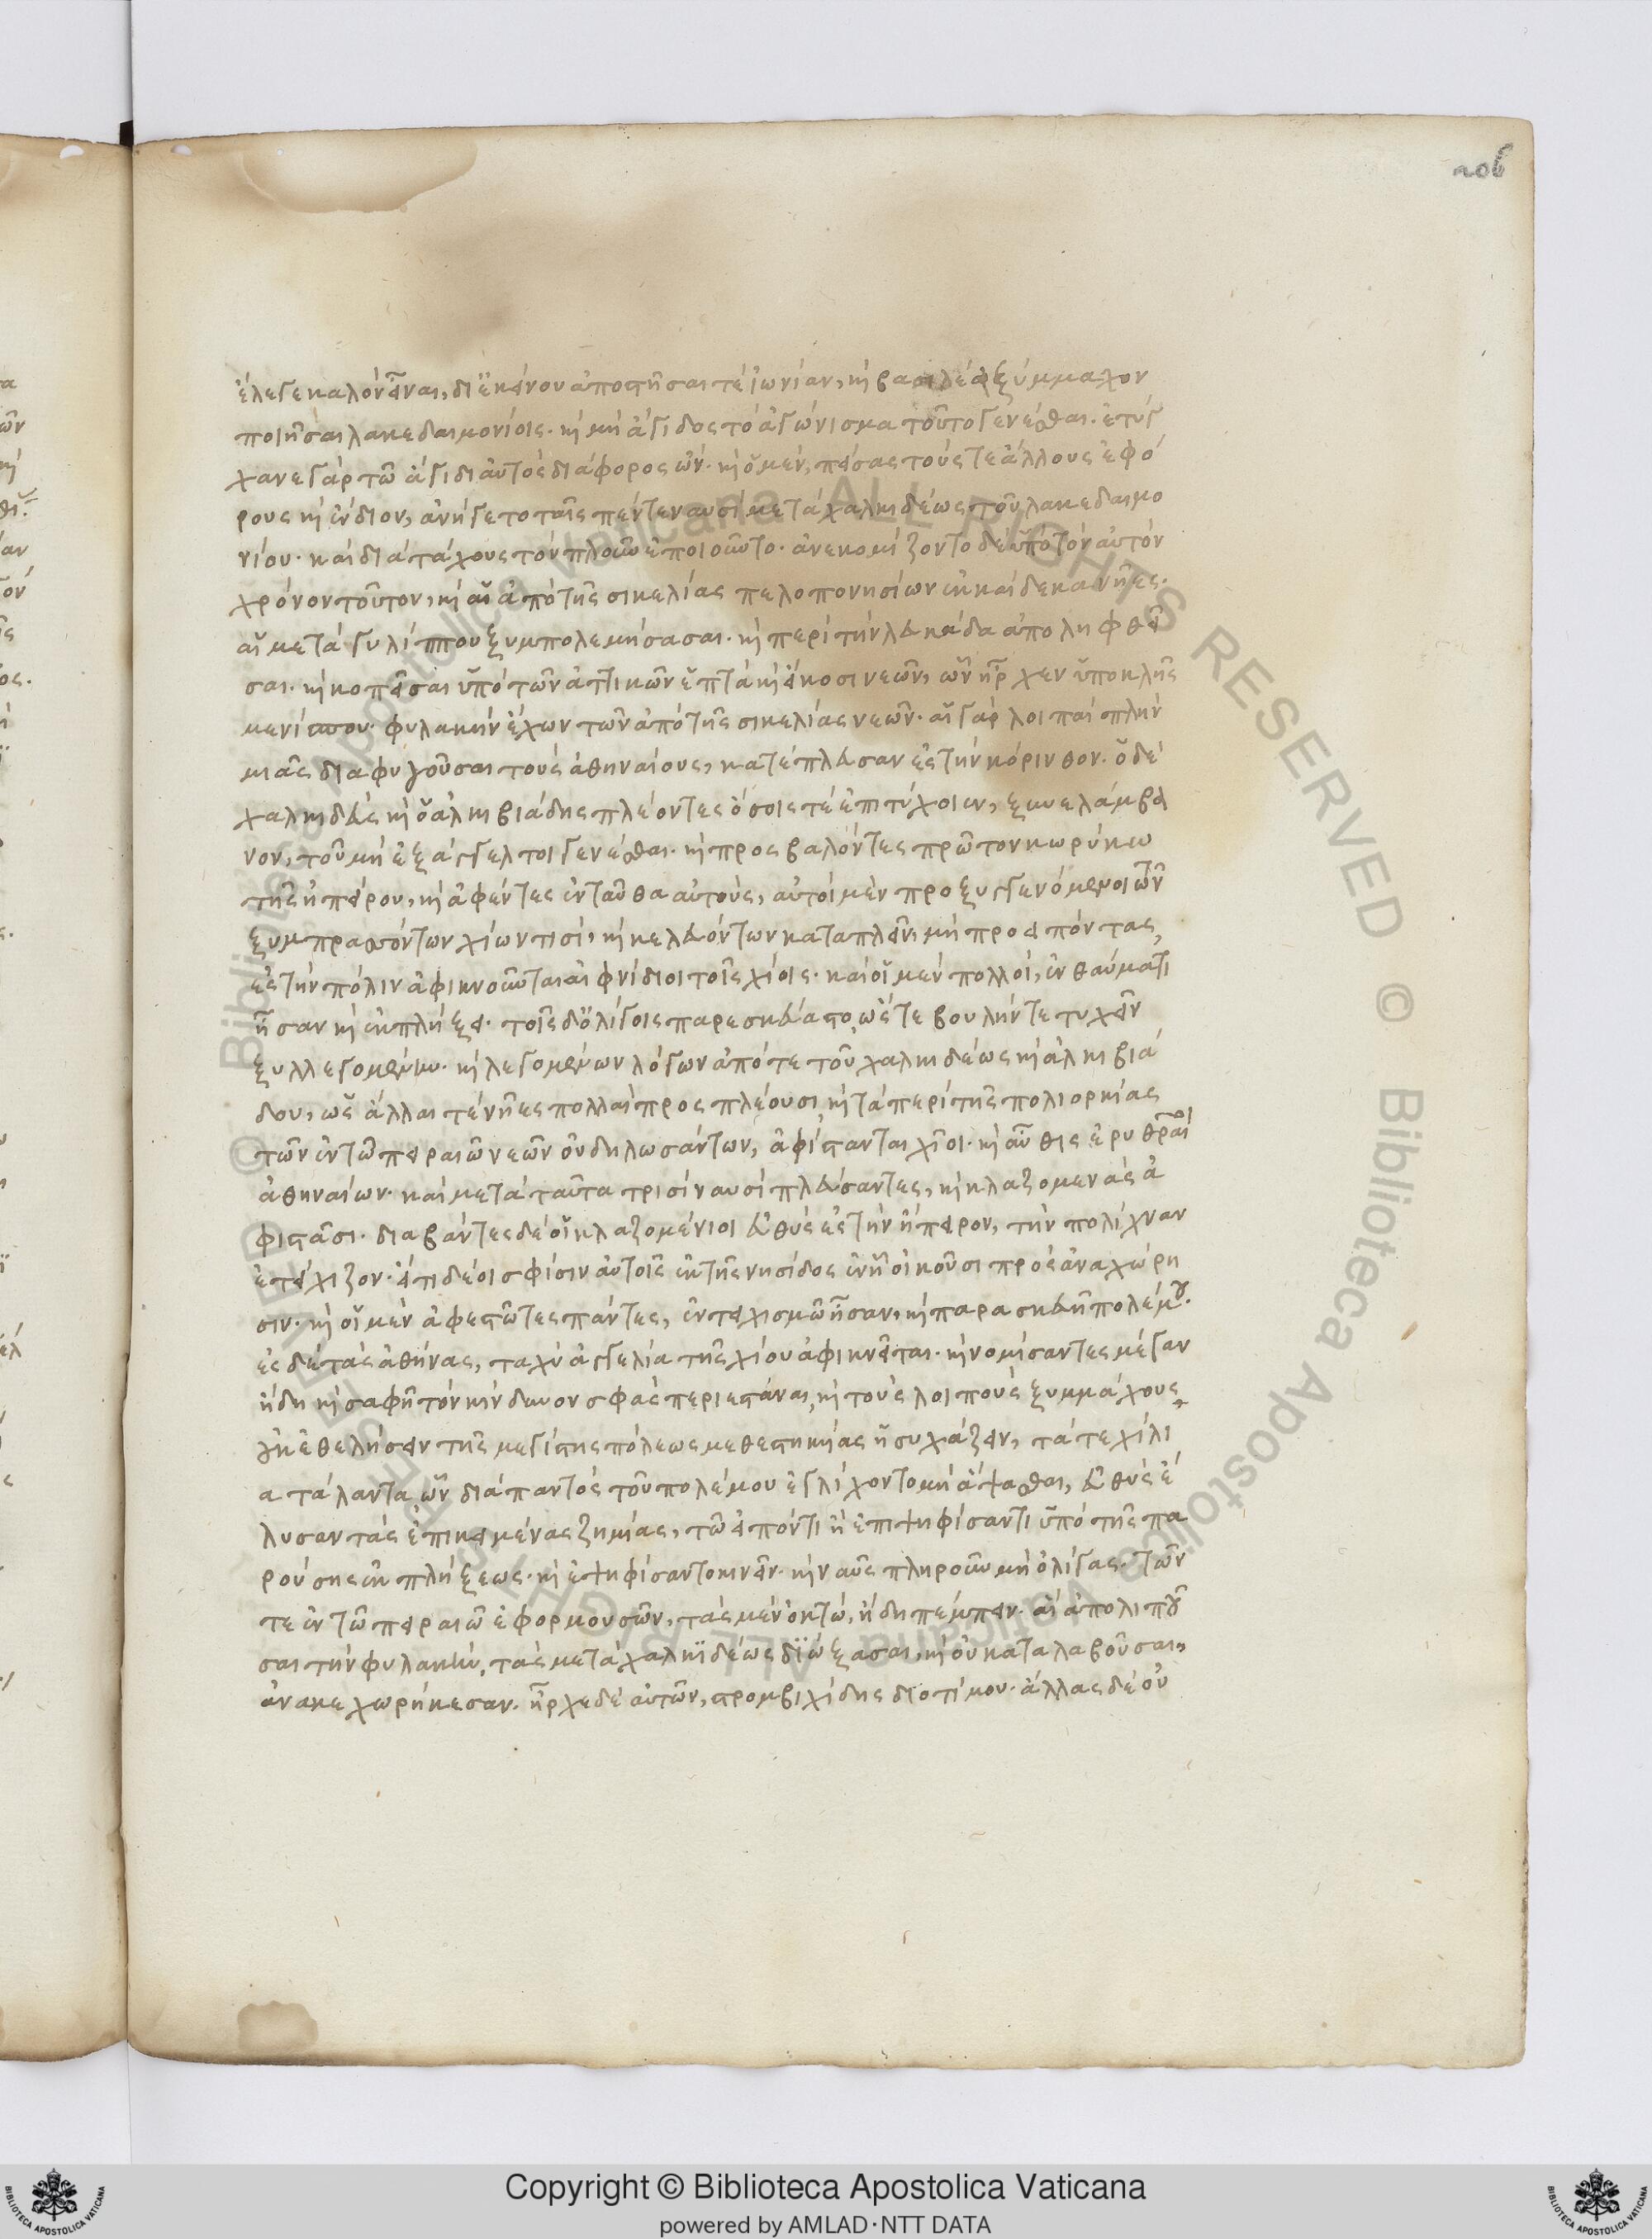 206
ἔλεγε καλὸν εἶναι, δι ἐκείνου ἀποστῆσαι τὲ ἰωνίαν, καὶ βασιλέα ξύμμαχον
ποιῆσαι λακεδαιμονίοις· καὶ μὴ ἄγιδος τὸ ἀγώνισμα τοῦτο γενέσθαι· ἐτύγ
χανε γὰρ τῶ ἄγιδι αὐτὸς διάφορος ὤν· καὶ ὁ μὲν, πείσας τούς τε ἄλλους ἐφό
ρους καὶ ἔνδιον, ἀνήγετο ταῖς πέντε ναυσὶ μετὰ χαλκιδέως τοῦ λακεδαιμο
νίου· καὶ διὰ τάχους τὸν πλοῦν ἐποιοῦντο· ἀνεκομίζοντο δὲ ὑπὸ τὸν αὐτὸν
χρόνον τοῦτον, καὶ αἱ ἀπὸ τῆς σικελίας πελοπονησίων ἑκκαίδεκα νῆες·
αἱ μετὰ γυλίππου ξυμπολεμήσασαι· καὶ περὶ τὴν λευκάδα ἀποληφθεῖ
σαι· καὶ κοπεῖσαι ὑπὸ τῶν ἀττικῶν ἑπτὰ καὶ εἴκοσι νεῶν, ὧν ἦρχεν ἱπποκλῆς
μενίππου· φυλακὴν ἔχων τῶν ἀπὸ τῆς σικελίας νεῶν· αἱ γὰρ λοιπαὶ πλὴν
μιᾶς διαφυγοῦσαι τοὺς ἀθηναίους, κατέπλευσαν ἐς τὴν κόρινθον· ὁ δὲ
χαλκιδεὺς καὶ ὁ ἀλκιβιάδης πλέοντες ὅσοις τὲ ἐπιτύχοιεν, ξυνελάμβα
νον, τοῦ μὴ ἐξάγγελτοι γενέσθαι· καὶ προσβαλόντες πρῶτον κωρύκω
τῆς ἠπείρου, καὶ ἀφέντες ἐνταῦθα αὐτοὺς, αὐτοὶ μὲν προξυγγενόμενοι τῶν
ξυμπρασσόντων χίων τισὶ, καὶ κελευόντων καταπλεῖν, μὴ προσειπόντας
ἐς τὴν πόλιν ἀφικνοῦνται αἰφνίδιοι τοῖς χίοις· καὶ οἱ μὲν πολλοὶ, ἐν θαύματι
ἦσαν καὶ ἐκπλήξει· τοῖς δ ὀλίγοις παρεσκεύαστο, ὥστε βουλήν τε τυχεῖν
ξυλλεγομένην· καὶ λεγομένων λόγων ἀπό τε τοῦ χαλκιδέως καὶ ἀλκιβιά
δου, ὡς ἄλλαι τὲ νῆες πολλαὶ προσπλέουσι, καὶ τὰ περὶ τῆς πολιορκίας
τῶν ἐν τῶ πειραιῶ νεῶν οὐ δηλωσάντων, ἀφίστανται χῖοι· καὶ αὖθις ἐρυθραῖοι
ἀθηναίων· καὶ μετὰ ταῦτα τρισὶ ναυσὶ πλεύσαντες, καὶ κλαζομενὰς ἀ
φιστᾶσι· διαβάντες δὲ οἱ κλαζομένιοι εὐθὺς ἐς τὴν ἤπειρον, τὴν πολίχναν
ἐτείχιζον· εἴ τι δέοι σφίσιν αὐτοῖς ἐκ τῆς νησίδος ἐν ἧ οἰκοῦσι πρὸς ἀναχώρη
σιν· καὶ οἱ μὲν ἀφεστῶτες πάντες, ἐν τειχισμῶ ἦσαν, καὶ παρασκευῆ πολέμου·
ἐς δὲ τὰς ἀθήνας, ταχὺ ἀγγελία τῆς χίου ἀφικνεῖται· καὶ νομίσαντες μέγαν
ἤδη καὶ σαφῆ τὸν κίνδυνον σφᾶς περιεστάναι, καὶ τοὺς λοιποὺς ξυμμάχους
οὐκ ἐθελήσειν τῆς μεγίστης πόλεως μεθεστηκυίας ἡσυχάζειν, τά τε χίλι
α τάλαντα, ὧν διὰ παντὸς τοῦ πολέμου ἐγλίχοντο μὴ ἅψασθαι, εὐθὺς ἔ
λυσαν τὰς ἐπικειμένας ζημίας, τῶ εἰπόντι ἢ ἐπιψηφίσαντι ὑπὸ τῆς πα
ρούσης ἐκπλήξεως· καὶ ἐψηφίσαντο κινεῖν· καὶ ναῦς πληροῦν μὴ ὀλίγας· τῶν
τε ἐν τῶ πειραιῶ ἐφορμουσῶν, τὰς μὲν ὀκτὼ, ἤδη πέμπειν· αἳ ἀπολιποῦ
σαι τὴν φυλακὴν, τὰς μετὰ χαλκιδέως διώξασαι, καὶ οὐ καταλαβοῦσαι,
ἀνακεχωρήκεσαν· ἦρχε δὲ αὐτῶν, στρομβιχίδης διοτίμου· ἄλλας δὲ οὐ
Copyright © Biblioteca Apostolica Vaticana
powered by AMLAD·NTT DATA